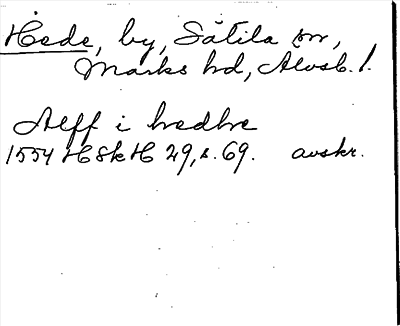 Hede, by, Sätila sn,
Marks hd, Älvsb. l.
Alff i hedhe
1554 HSkH 29, s. 69. avskr.